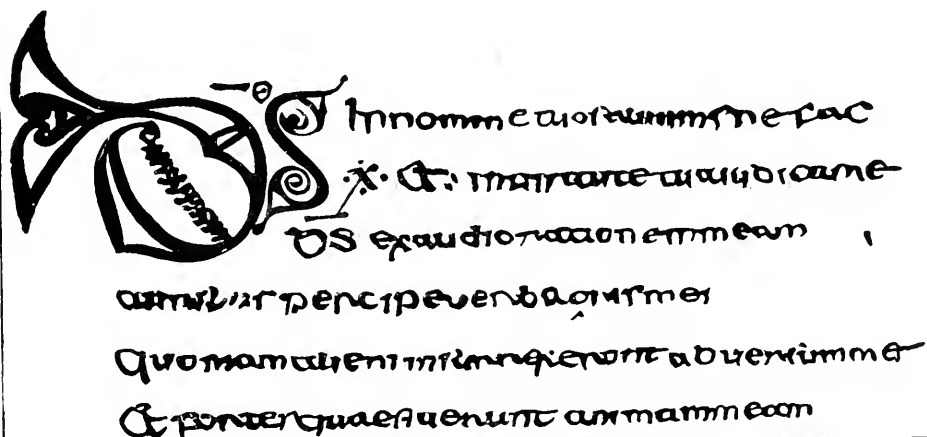 DS in nomine tuo saluum me fac
·x· et in uirtute tua iudica me
ds exaudi orationem meam
auribus percipe uerba oris mei
quoniam alieni insurrexerunt aduersum me
et fortes quaesierunt animam meam